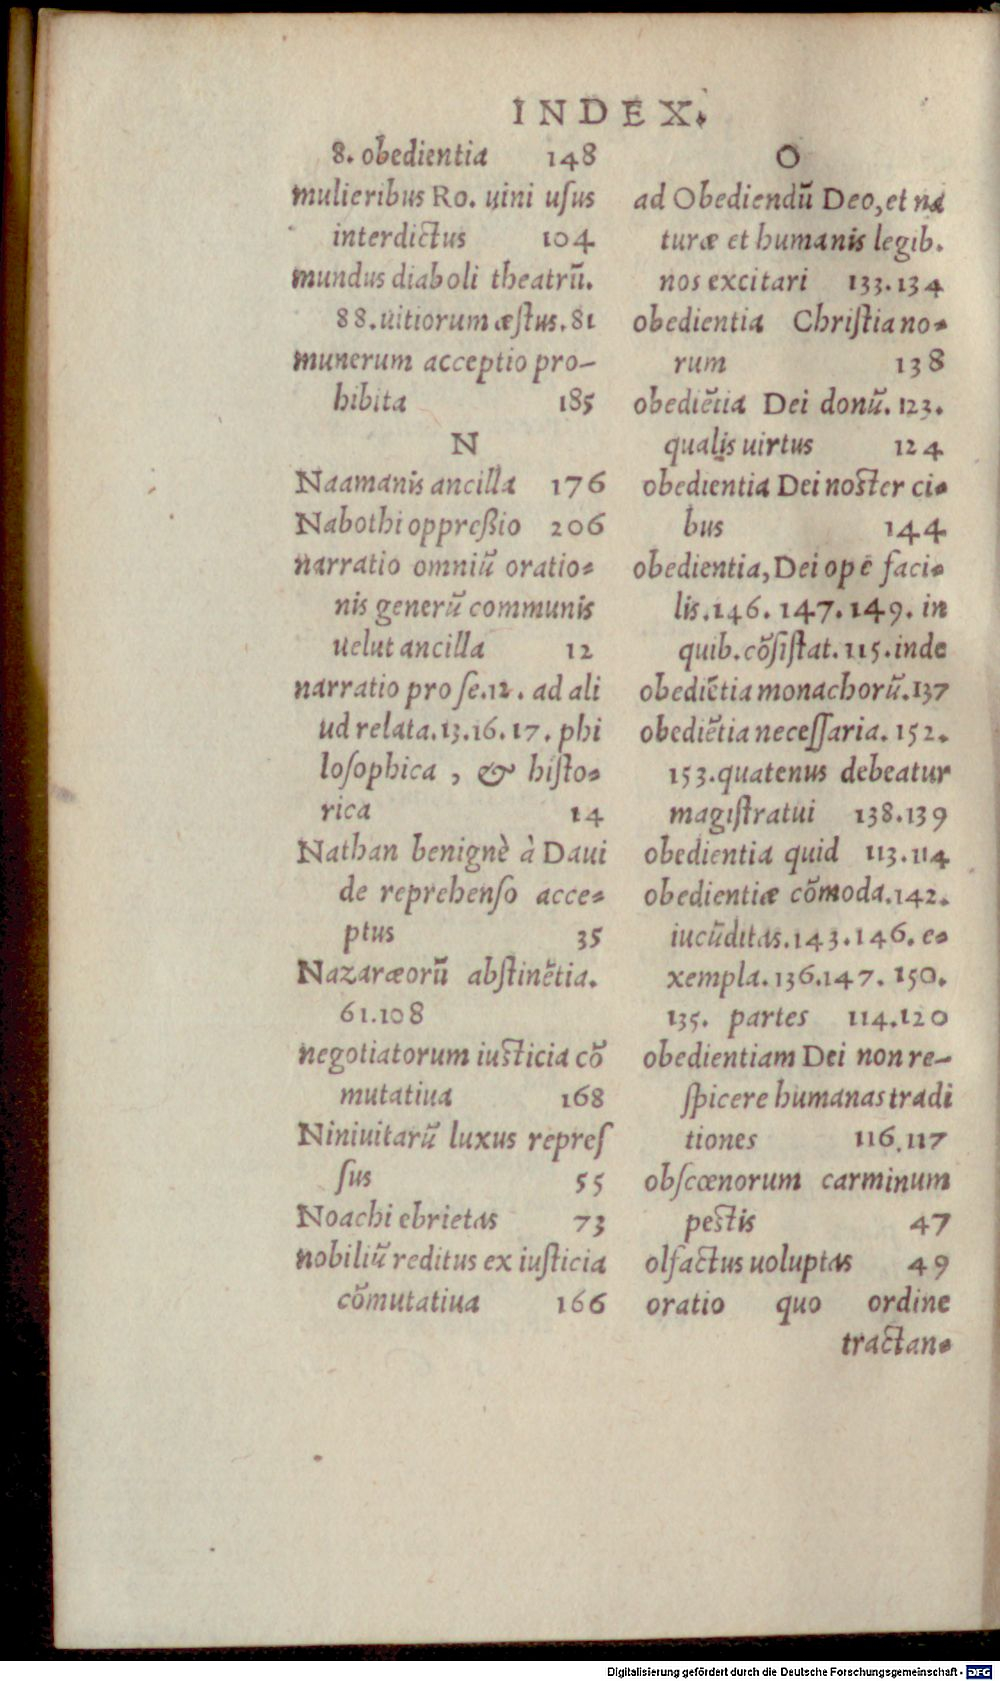 INDEX.
8. obedientia 148
mulieribus Ro. uini uſus
interdictus 104
mundus diaboli theatrũ.
88. uitiorum æſtus. 81
munerum acceptio pro-
hibita 185
N
Naamanis ancilla 176
Nabothi oppreßio 206
narratio omniũ oratio-
nis generũ communis
uelut ancilla 12
narratio pro ſe. 12. ad ali
ud relata. 13. 16. 17. phi
loſophica, & hiſto-
rica 14
Nathan benignè à Daui
de reprehenſo acce-
ptus 35
Nazaræorũ abſtinẽtia.
61. 108
negotiatorum iuſticia cõ
mutatiua 168
Niniuitarũ luxus repreſ
ſus 55
Noachi ebrietas 73
nobiliũ reditus ex iuſticia
cõmutatiua 166
O
ad Obediendũ Deo, et na
turæ et humanis legib.
nos excitari 133. 134
obedientia Chriſtiano-
rum 138
obediẽtia Dei donũ. 123.
qualis uirtus 124
obedientia Dei noſter ci-
bus 144
obedientia, Dei opẽ faci-
lis. 146. 147. 149. in
quib. cõſiſtat. 115. inde
obediẽtia monachorũ. 137
obediẽtia neceſſaria. 152.
153. quatenus debeatur
magiſtratui 138. 139
obedientia quid 113. 114
obedientiæ cõmoda. 142.
iucũditas. 143. 146. e-
xempla. 136. 147. 150.
135. partes 114. 120
obedientiam Dei non re-
ſpicere humanas tradi
tiones 116. 117
obſcœnorum carminum
peſtis 47
olfactus uoluptas 49
oratio quo ordine
tractan-
Digitalisierung gefördert durch die Deutsche Forschungsgemeinschaft - DFG